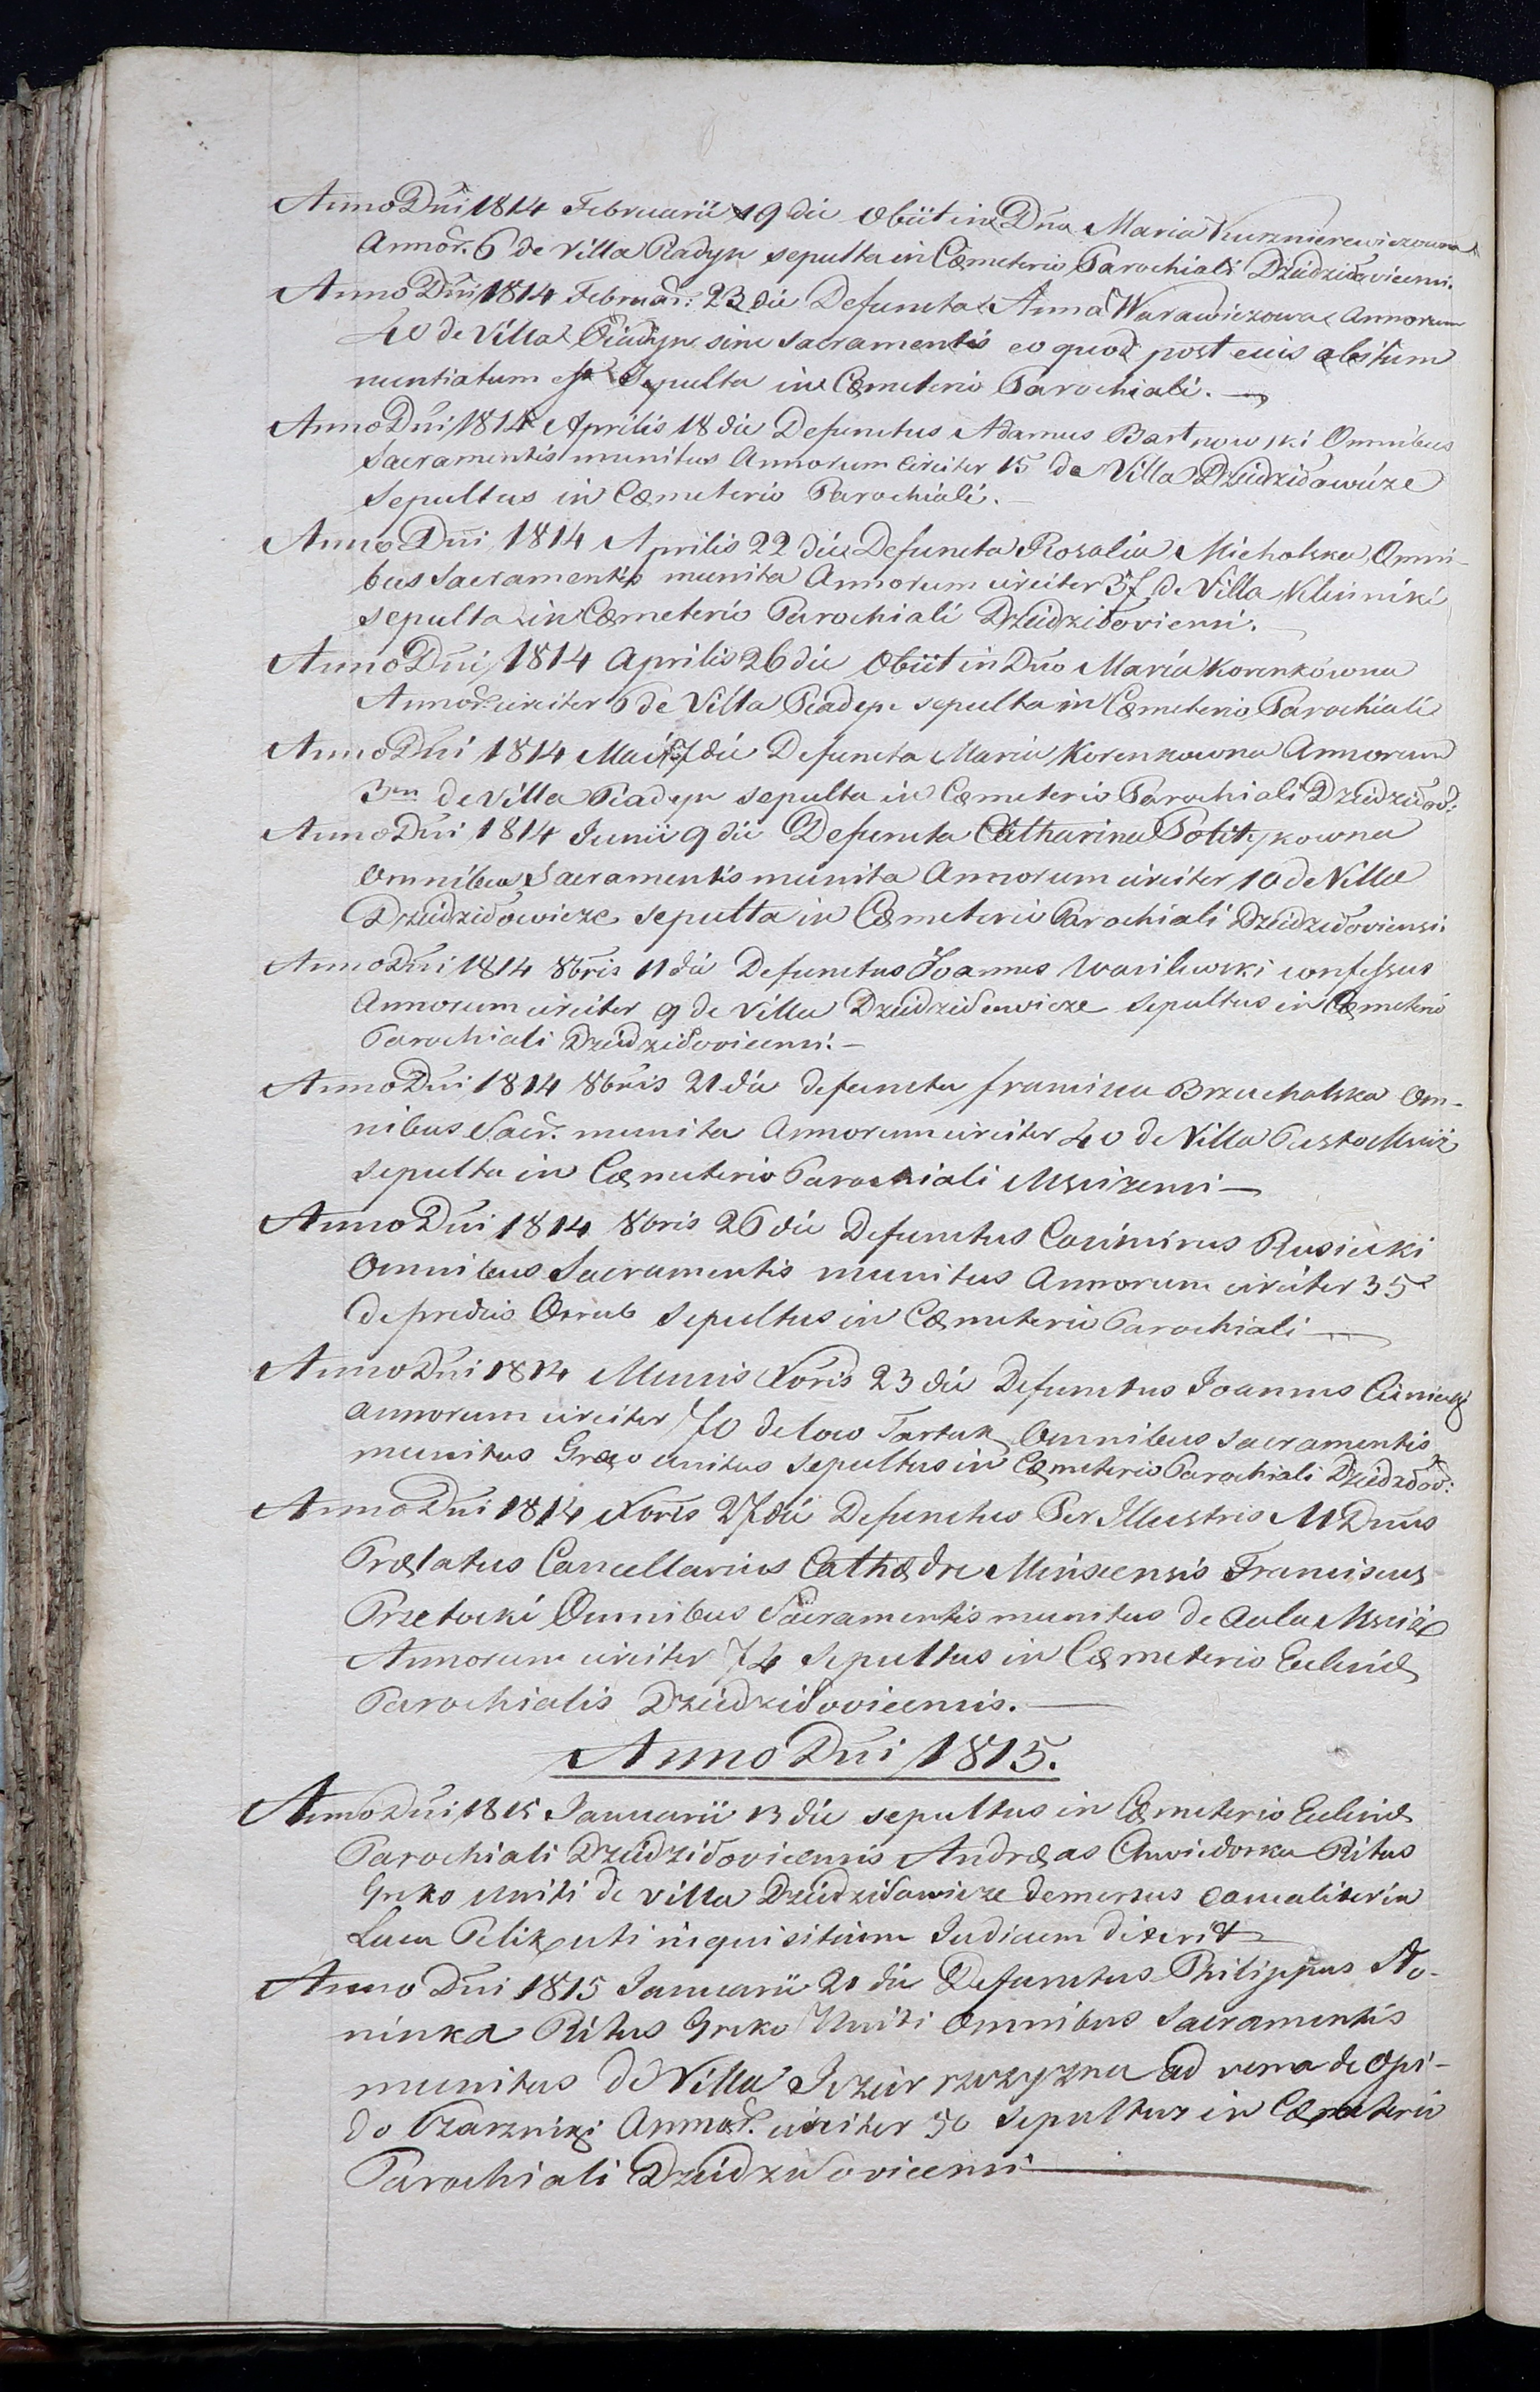 Anno Dñi 1814 Februarii 19 die Obiit in Dño Maria Kurznierewiczowna
Annor. 6 de Villa Piadyn sepulta in Cœmeterio Parochiali Dziedziłovicensi.
Anno Dñi 1814 Februar: 23 die Defuncta Anna Warawiczowa Annorum
40 de Villa Piadyn sine Sacramentis eo quod post eius obitum
nuntiatum est Sepulta in Cœmeterio Parochiali.
Anno Dñi 1814 Aprilis 18 die Defunctus Adamus Bartnowski Omnibus
Sacramentis munitus Annorum circiter 15 de Villa Dziedziławicze
Sepultus in Cœmeterio Parochiali.
Anno Dñi 1814 Aprilis 22 die Defuncta Rosalia Michalska Omni-
bus Sacramentis munita Annorum circiter 37 de Villa Klinniki
sepulta in Cœmeterio Parochiali Dziedziłoviensi.
Anno Dñi 1814 Aprilis 26 die Obiit in Dño Maria Korenkówna
Annor. circiter 6 de Villa Piadyn sepulta in Cœmeterio Parochiali
Anno Dñi 1814 Maii die Defuncta Maria Korenkowna Annorum
3m de Villa Piadyn sepulta in Cœmeterio Parochiali Dziedziłov:
Anno Dñi 1814 Junii 9 die Defuncta Catharina Potitykowna
Omnibus Sacramentis munita Annorum circiter 10 de Villa
Dziedziłowicze sepulta in Cœmeterio Parochiali Dziedziłoviensi.
Anno Dñi 1814 8bris 11 die Defunctus Joannes Wasilewski confessus
Annorum circiter 9 de Villa Dziedziłowicze Sepultus in Cœmeterio
Parochiali Dziedziłovicensi.—
Anno Dñi 1814 8bris 21 die defuncta francisca Brzuchalska Om-
nibus Sacr. munita Annorum circiter 40 de Villa Pusto
sepulta in Cœmeterio Parochiali Mscizensi—
Anno Dñi 1814 8bris 26 die Defunctus Casimirus Rusiecki
Omnibus Sacramentis munitus Annorum circiter 35
de prediis Osrub Sepultus in Cœmeterio Parochiali—
Anno Dñi 1814 Mensis Xbris 23 die Defunctus Joannes
Annorum circiter 70 de loco Tartak Omnibus Sacramentis
munitus Græco unitus Sepultus in Cœmeterio Parochiali Dziedzłov:
Anno Dñi 1814 Xbris 27 die Defunctus Per Illustris M Dñus
Prælatus Cancellarius Cathædre Minscensis Franciscus
Przetocki Omnibus Sacramentis munitus de Aula Msciż
Annorum circiter 74 Sepultus in Cœmeterio Eclesiæ
Parochialis Dziedziłovicensis.—
Anno Dñi 1815.
Anno Dñi 1815 Januarii 13 die sepultus in Cœmeterio Eclesiæ
Parochiali Dziedziłovicensis Andræas Chwiedorka Ritus
Greko Uniti de Villa Dziedziławicze demersus casualiter in
Lacu Pelik uti inquisitium Judicum dixerit
Anno Dñi 1815 Januarii 21 die Defunctus Philippus No-
ninka Ritus Greko Uniti Omnibus Sacramentis
munitus de Villa ad de Opi-
do Annor. circiter 50 Sepultus in Cœmeterio
Parochiali Dziedziłovicensi—